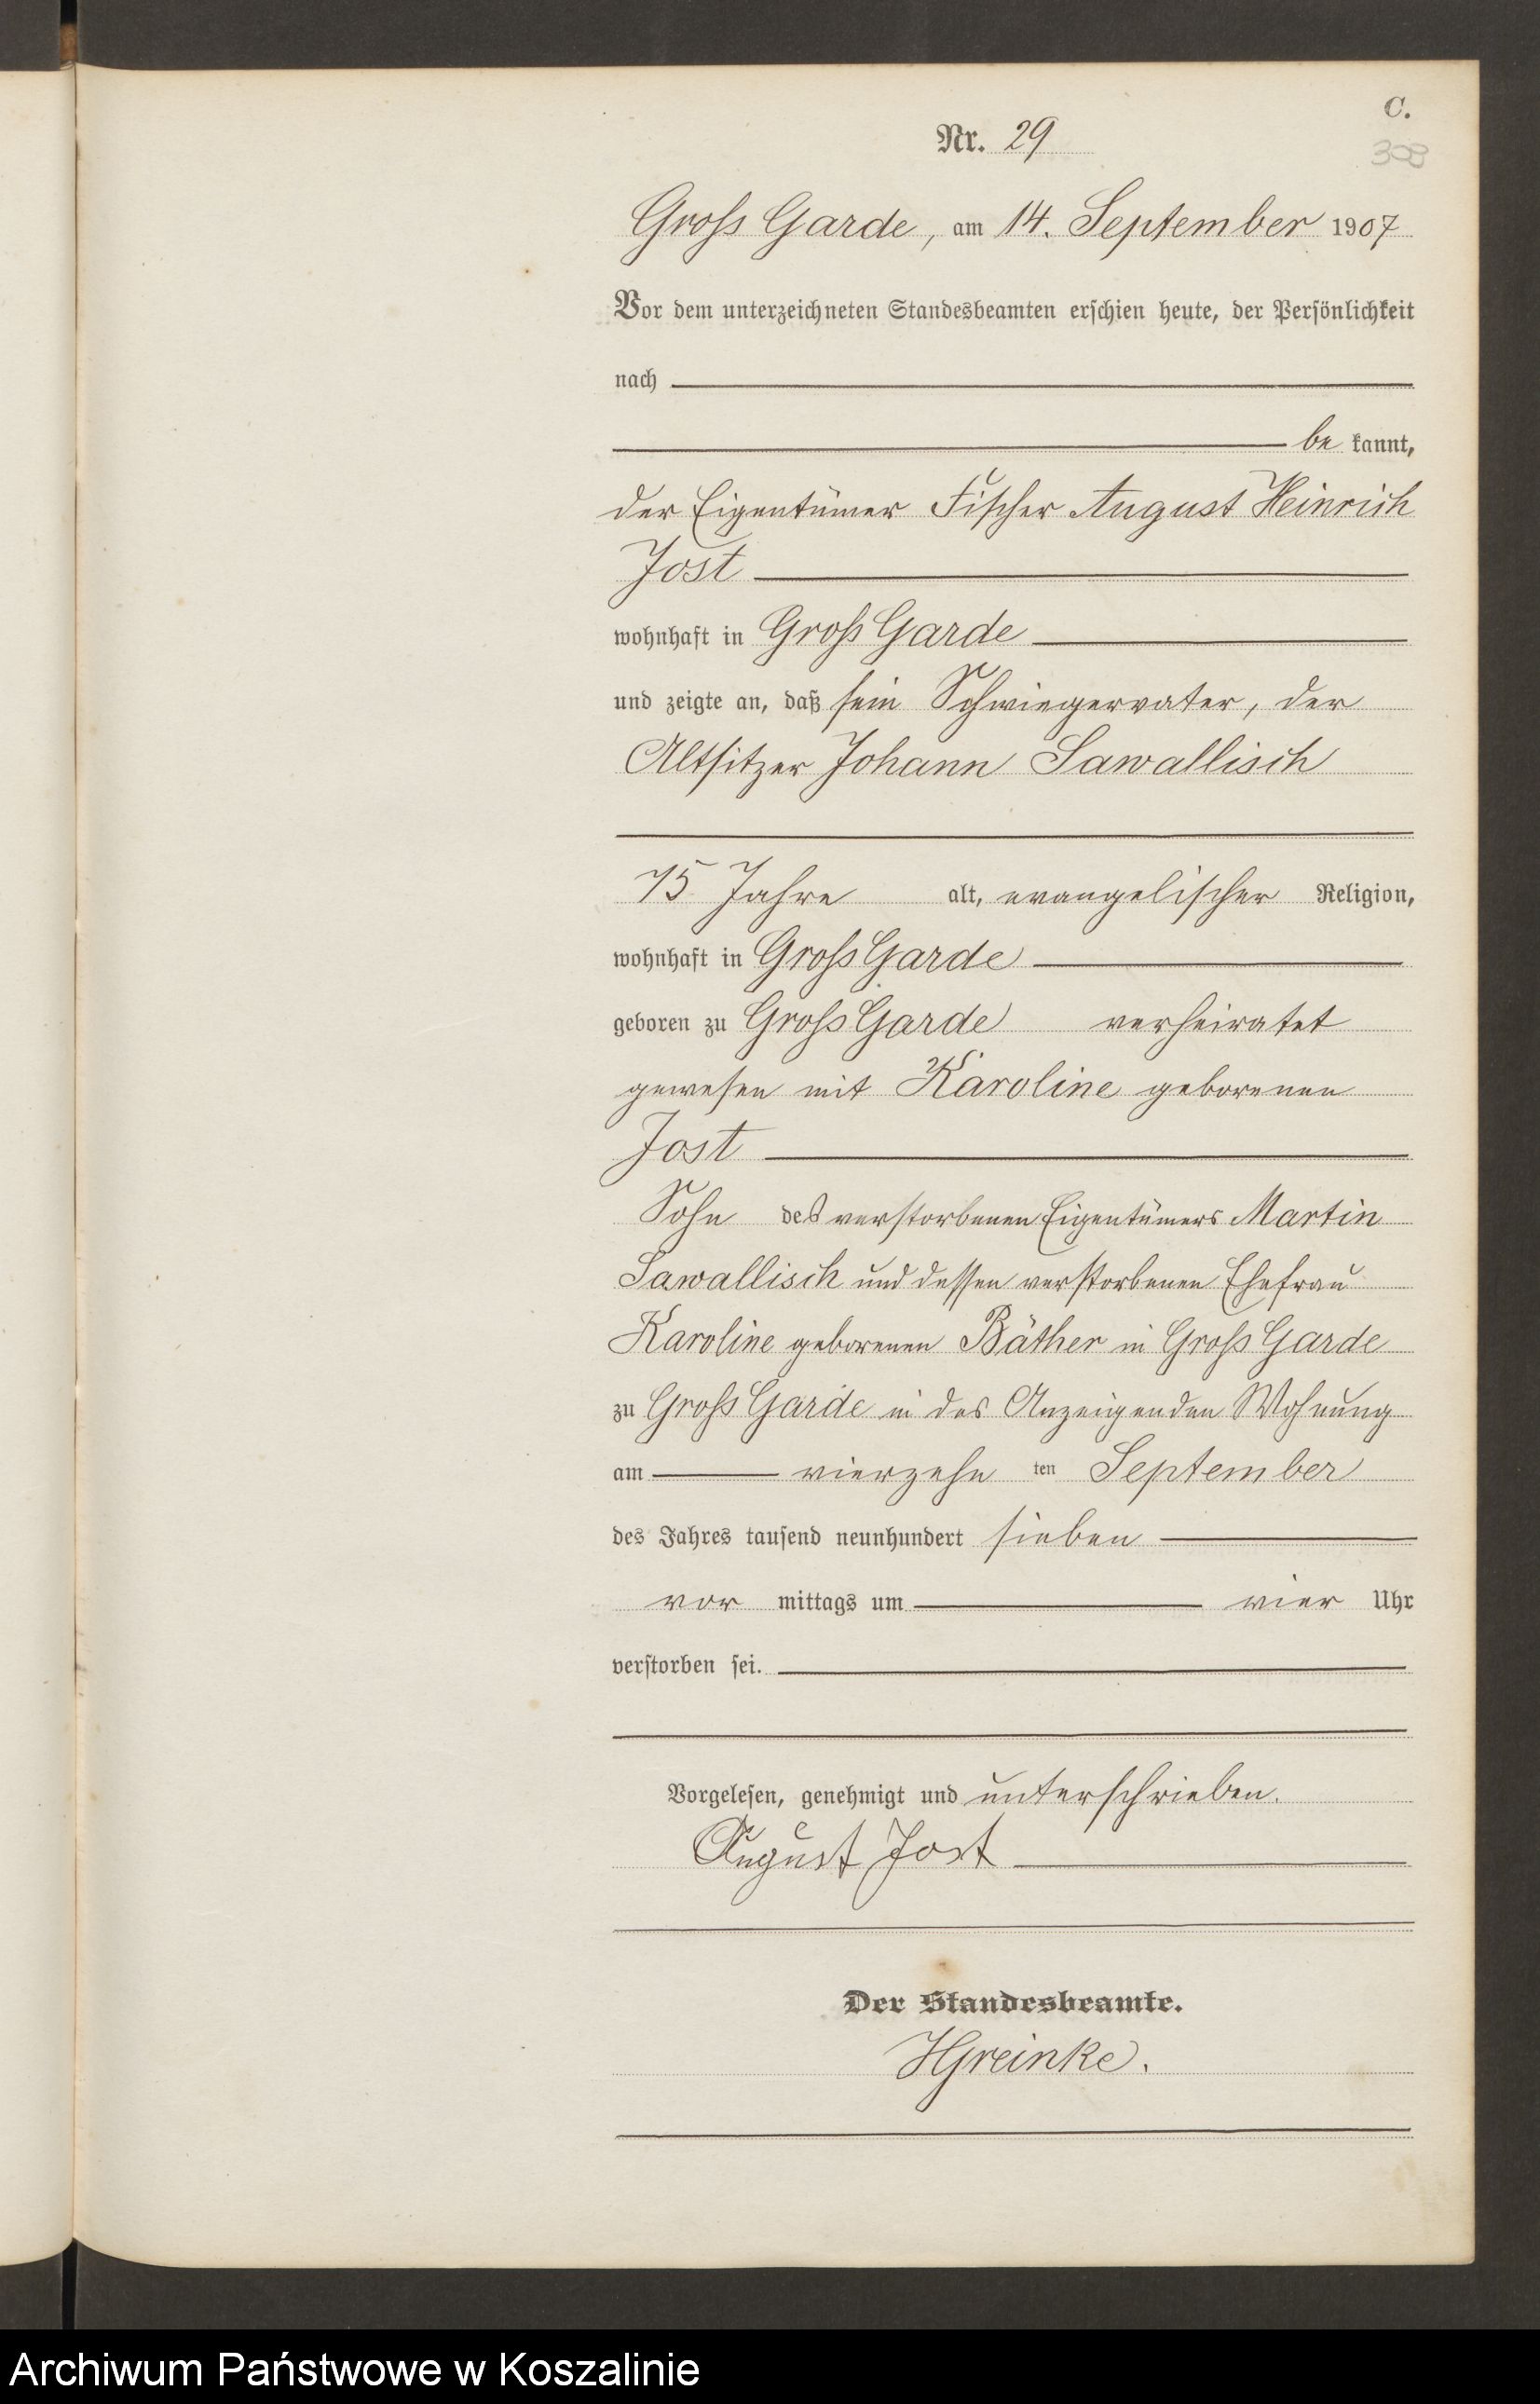 C.
Nr. 29
308
Groß Garde, am 14. September 1907
Vor dem unterzeichneten Standesbeamten erschien heute, der Persönlichkeit
nach
be kannt,
der Eigentümer Fischer August Heinrich
Jost
wohnhaft in Groß Garde
und zeigte an, daß sein Schwiegervater, der
Altsitzer Johann Sawallisch
75 Jahre alt, evangelischer Religion,
wohnhaft in Groß Garde
geboren zu Groß Garde verheiratet
gewesen mit Karoline geborenen
Jost
Sohn des verstorbenen Eigentümers Martin
Sawallisch und dessen verstorbenen Ehefrau
Karoline geborenen Bäther in Groß Garde
zu Groß Garde in des Anzeigenden Wohnung
am vierzehn ten September
des Jahres tausend neunhundert sieben
vor mittags um vier Uhr
verstorben sei.
Vorgelesen, genehmigt und unterschrieben.
August Jost
Der Standesbeamte.
HGreinke.
Archiwum Państwowe w Koszalinie